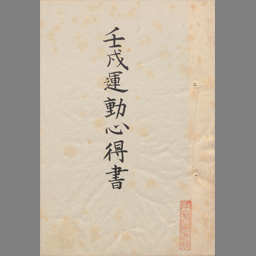 壬戌運動心得書